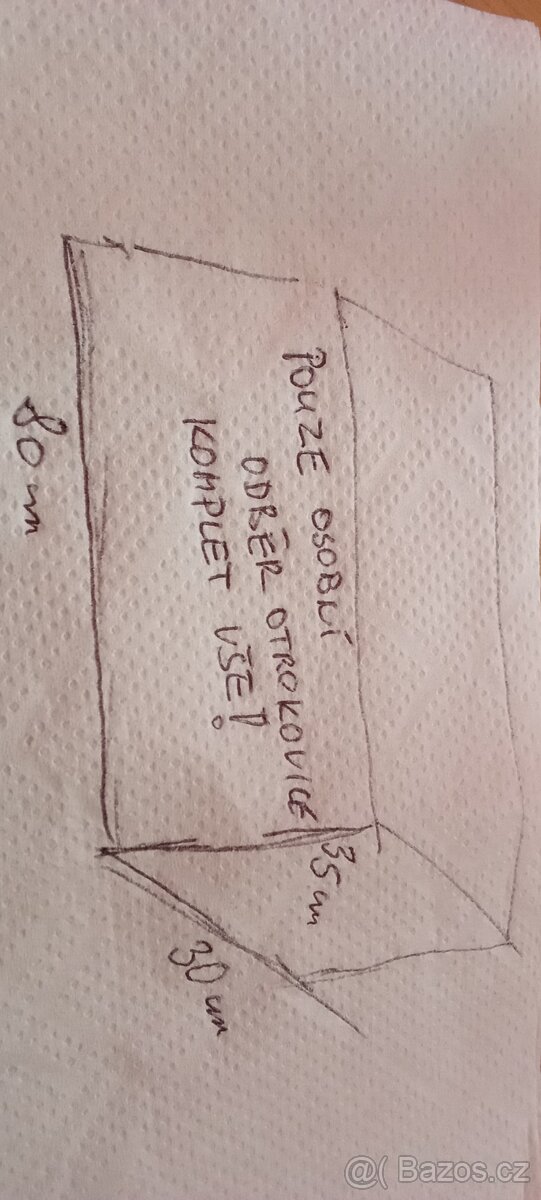 POUZE OSOBNÍ
ODBĚR OTROKOVICE
KOMPLET VŠE!
80 cm
35 cm
30 cm
@( Bazos.cz